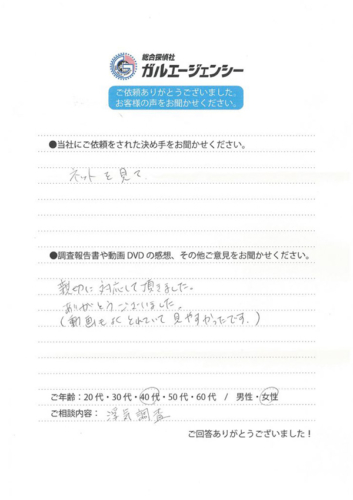 総合探偵社
ガルエージェンシー
ご依頼ありがとうございました。
お客様の声をお聞かせください。
●当社にご依頼をされた決め手をお聞かせください。
ネットを見て
●調査報告書や動画DVDの感想、その他ご意見をお聞かせください。
親切に対応して頂きました。
ありがとうございました。
(動画もよくとれていて見やすかったです。)
ご年齢：20代・30代・40代・50代・60代 / 男性・女性
ご相談内容： 浮気調査
ご回答ありがとうございました！